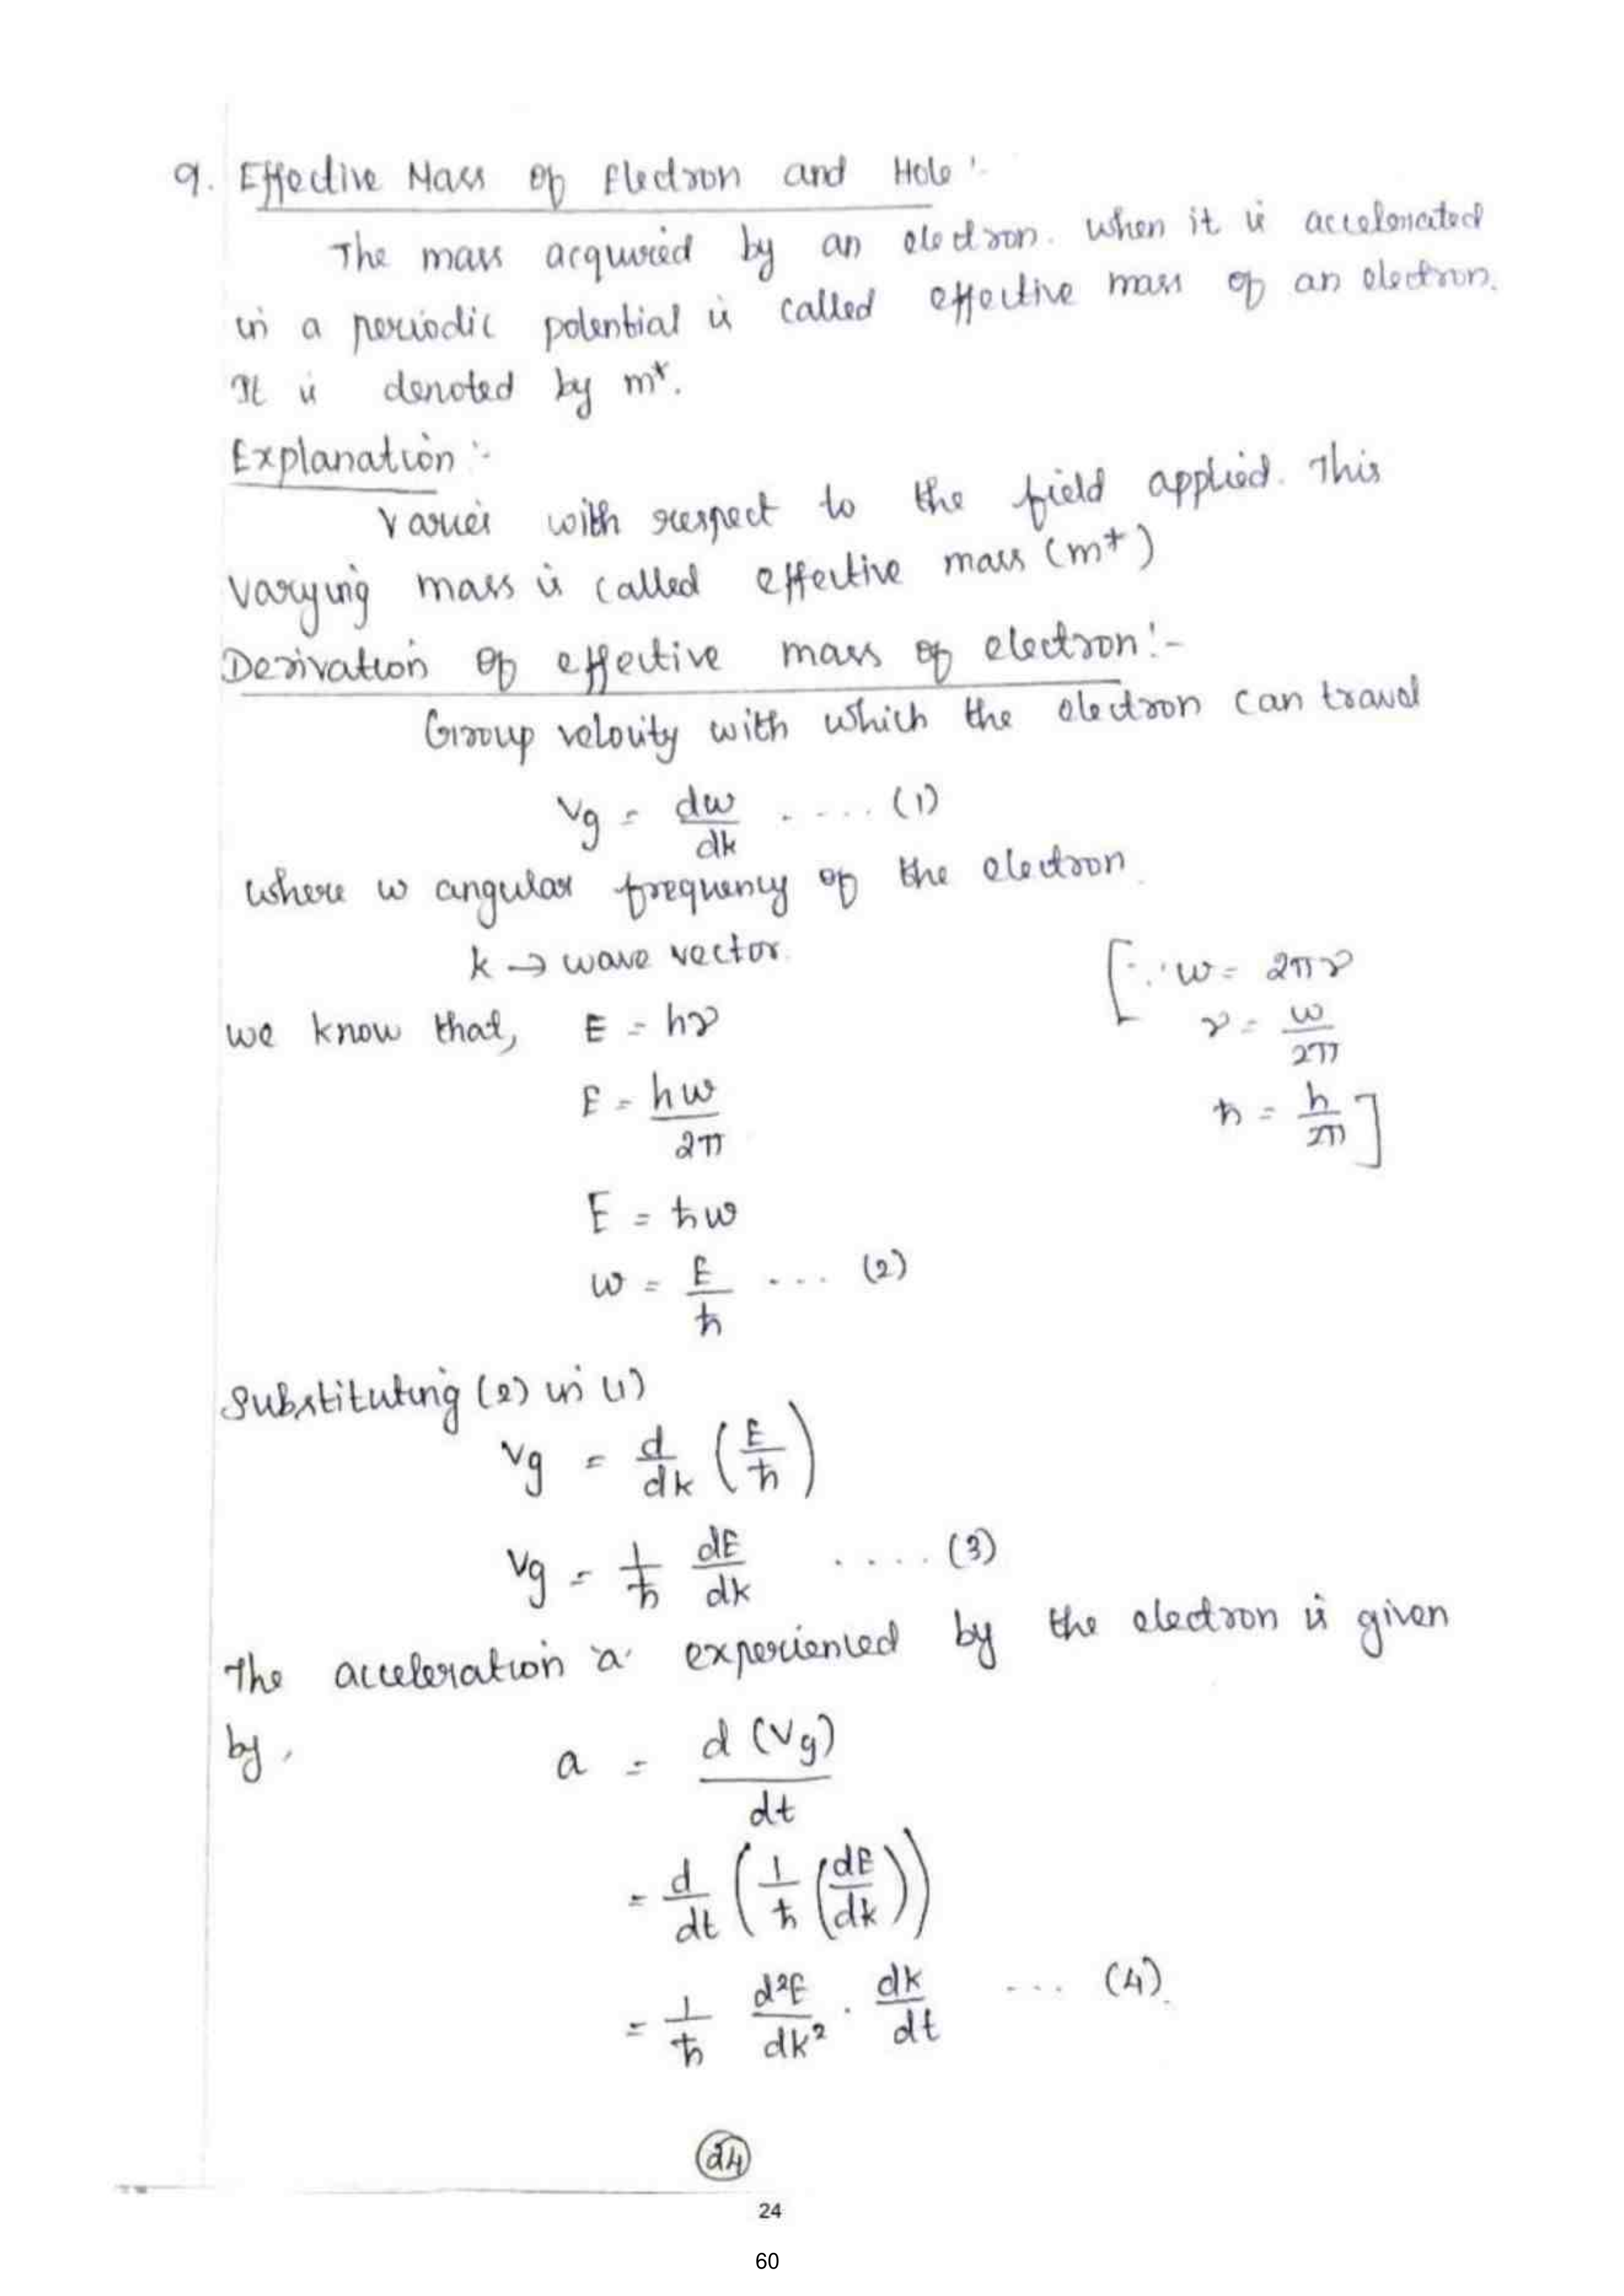 9. Effective Mass of Electron and Hole :-
The mass acquired by an electron. when it is accelerated
in a periodic potential is called effective mass of an electron.
It is denoted by m*.
Explanation :-
Varies with respect to the field applied. This
varying mass is called effective mass (m*)
Derivation of effective mass of electron :-
Group velocity with which the electron can travel
vg = dω/dk ..... (1)
where ω angular frequency of the electron.
k → wave vector.
[∵ ω = 2πν
we know that, E = hν
ν = ω/2π
E = hω/2π
ħ = h/2π]
E = ħω
ω = E/ħ ... (2)
Substituting (2) in (1)
vg = d/dk (E/ħ)
vg = 1/ħ dE/dk ..... (3)
The acceleration 'a' experienced by the electron is given
by, a = d(vg)/dt
= d/dt (1/ħ (dE/dk))
= 1/ħ d²E/dk² . dk/dt ... (4).
24
24
60